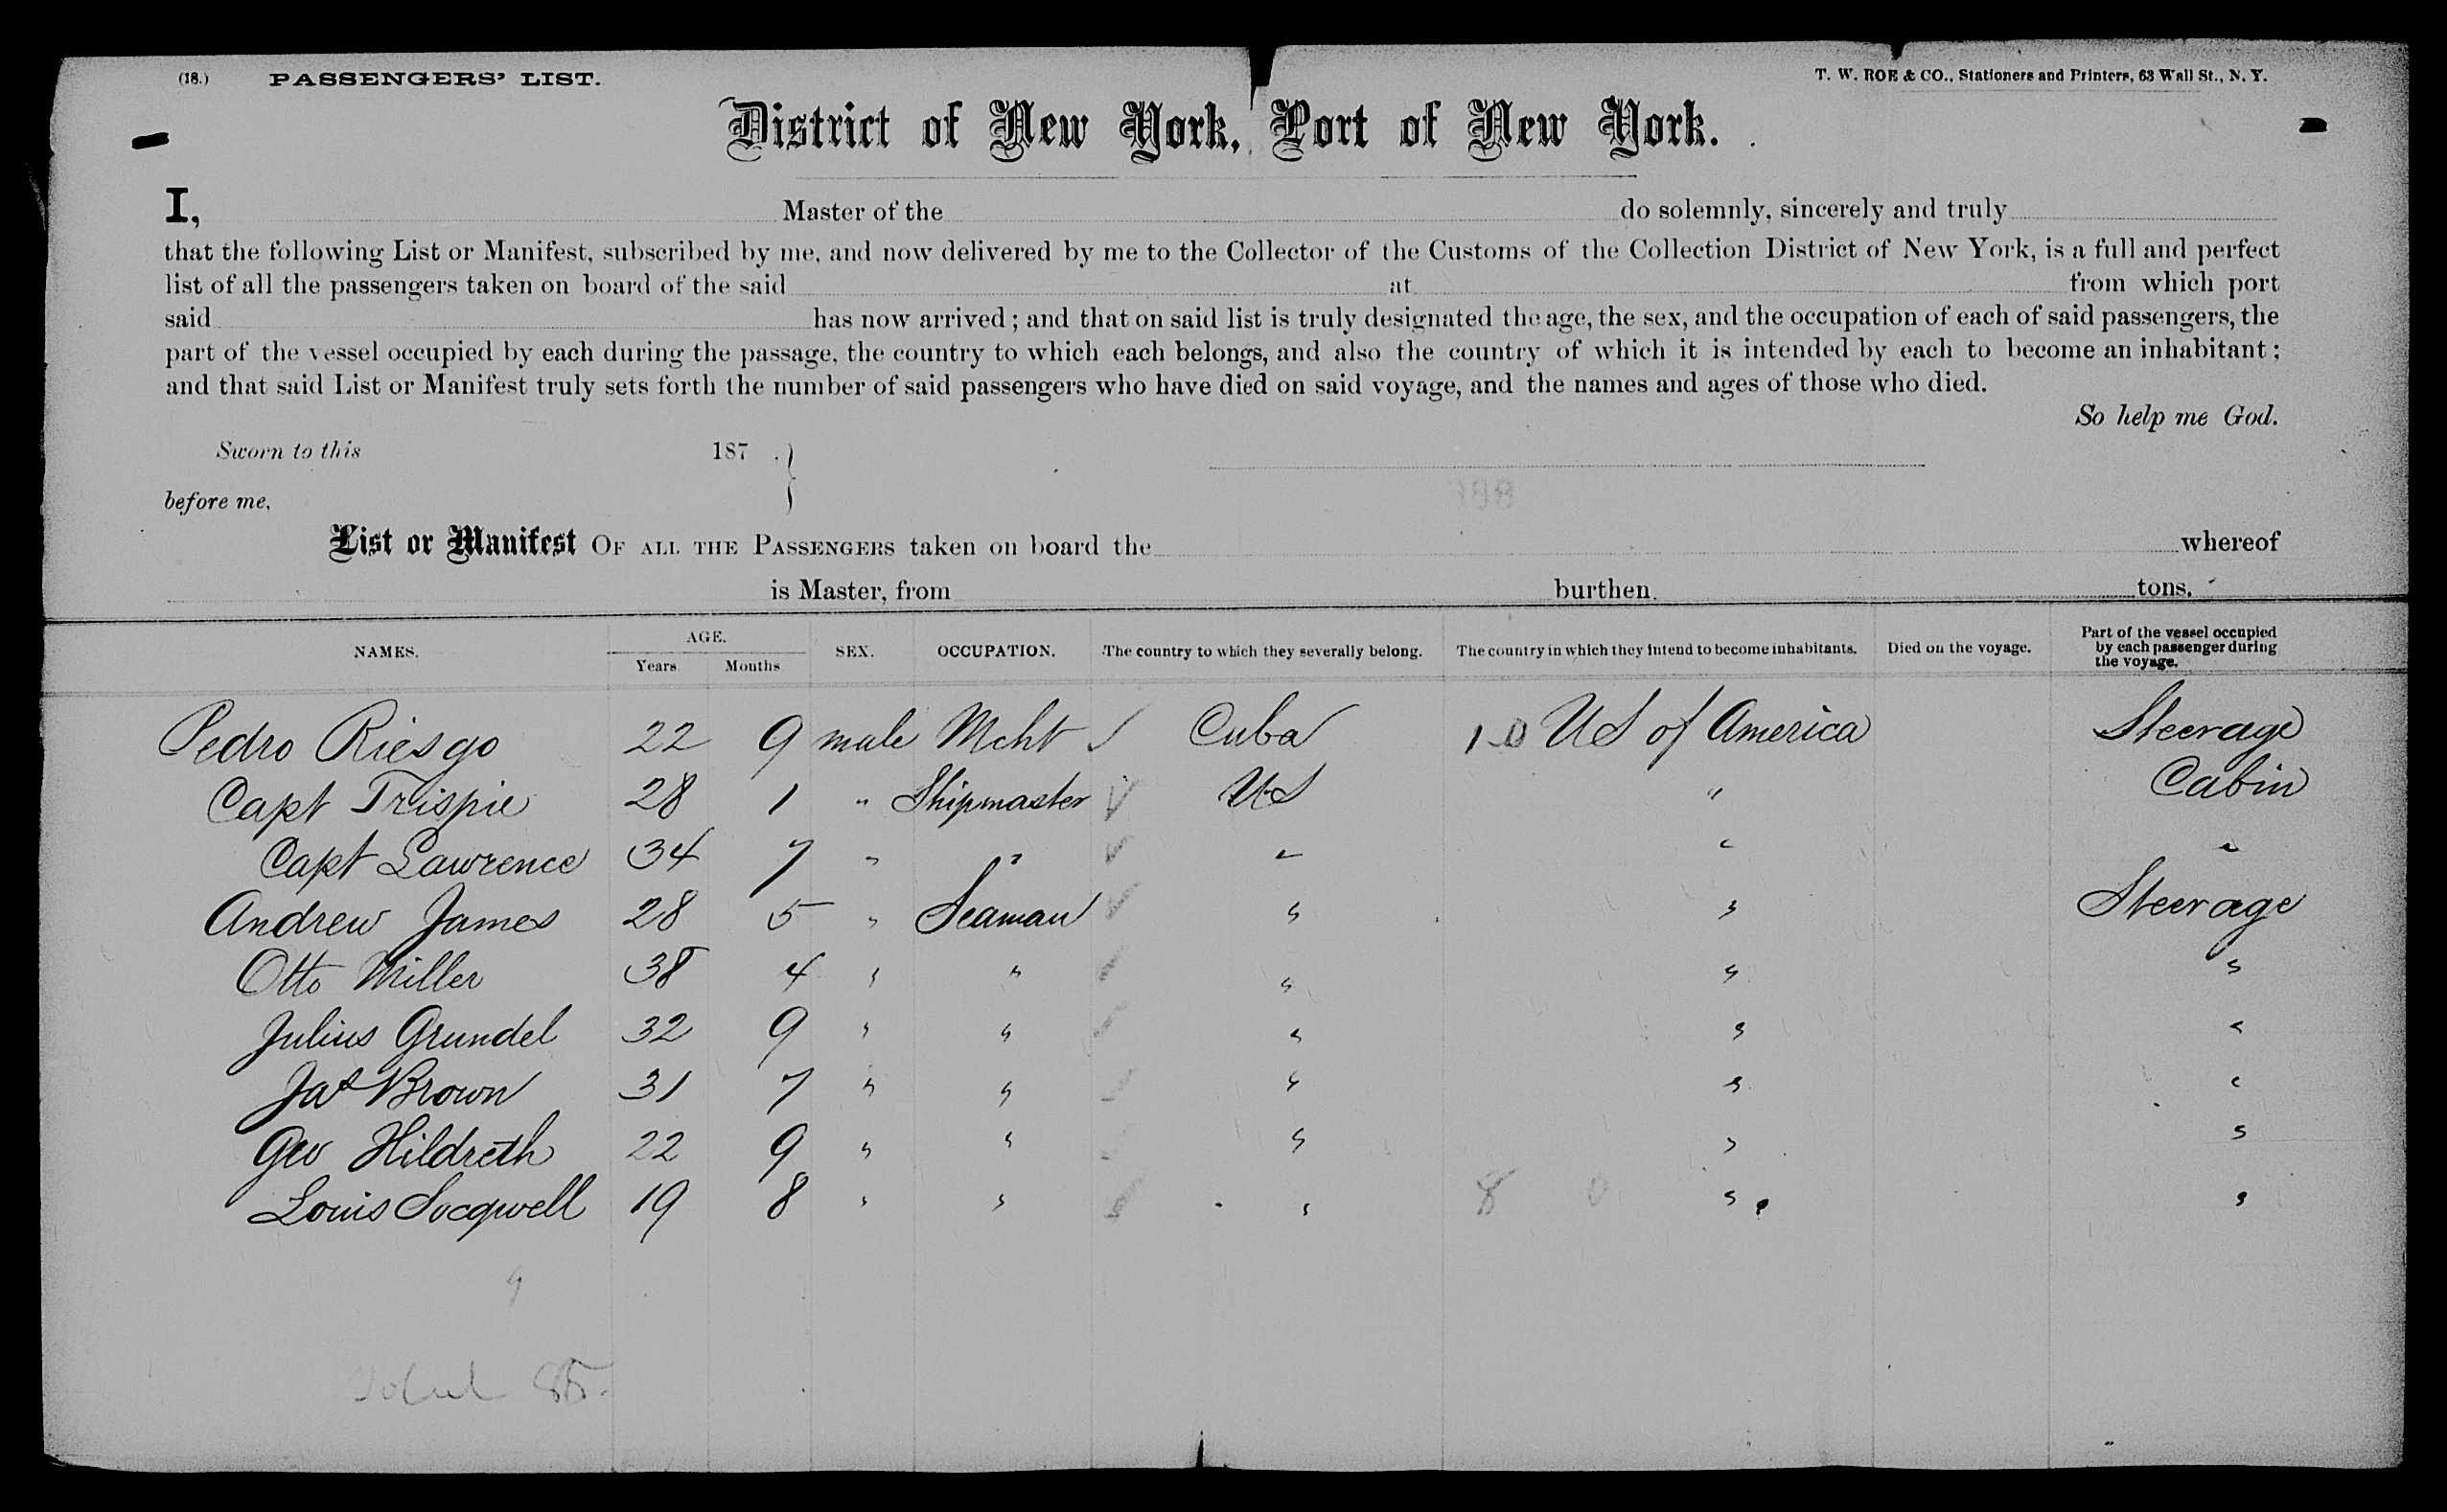 (18.) PASSENGERS' LIST. T. W. ROE & CO., Stationers and Printers, 63 Wall St., N. Y.
District of New York, Port of New York.
I, Master of the do solemnly, sincerely and truly
that the following List or Manifest, subscribed by me, and now delivered by me to the Collector of the Customs of the Collection District of New York, is a full and perfect
list of all the passengers taken on board of the said at from which port
said has now arrived; and that on said list is truly designated the age, the sex, and the occupation of each of said passengers, the
part of the vessel occupied by each during the passage, the country to which each belongs, and also the country of which it is intended by each to become an inhabitant;
and that said List or Manifest truly sets forth the number of said passengers who have died on said voyage, and the names and ages of those who died.
So help me God.
Sworn to this 187 }
before me,
List or Manifest OF ALL THE PASSENGERS taken on board the whereof
is Master, from burthen tons.
NAMES. AGE. SEX. OCCUPATION. The country to which they severally belong. The country in which they intend to become inhabitants. Died on the voyage. Part of the vessel occupied
by each passenger during
the voyage.
Years Months
Pedro Riesgo 22 9 male Mcht Cuba 1 0 US of America Steerage
Capt Trispie 28 1 " Shipmaster US " Cabin
Capt Lawrence 34 7 " " " " "
Andrew James 28 5 " Seaman " " Steerage
Otto Miller 38 4 " " " " "
Julius Grundel 32 9 " " " " "
Jas Brown 31 7 " " " " "
Geo Hildreth 22 9 " " " " "
Louis Socqwell 19 8 " " " 8 0 " "
9
Total 85.